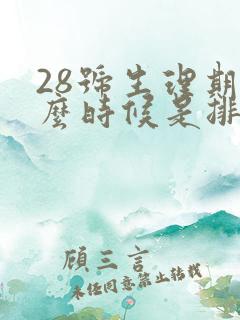 28號生理期
麼時候是排
顧三言
未經同意禁止轉載